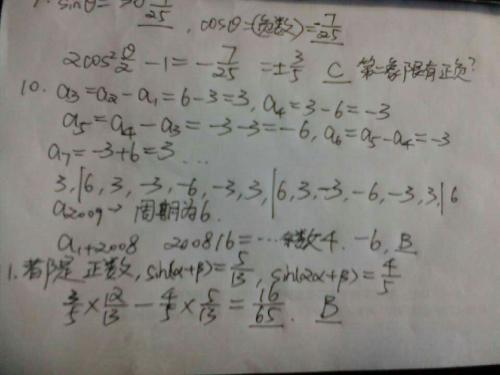 sinθ= 7/25, cosθ=(负数)=-7/25
2cos²θ/2-1=-7/25 =±3/5 C 第二象限有正负?
10. a₃=a₂-a₁=6-3=3, a₄=3-6=-3
a₅=a₄-a₃=-3-3=-6, a₆=a₅-a₄=-3
a₇=-3+6=3 ...
3,|6,3,-3,-6,-3,3,|6,3,-3,-6,-3,3,|6
a₂₀₀₉→周期为6.
a₁₊₂₀₀₈ 2008/6=…余数4. -6, B
1.若β是正数, sin(α+β)=5/13, sin(2α+β)=4/5
3/5×12/13-4/5×5/13=16/65. B